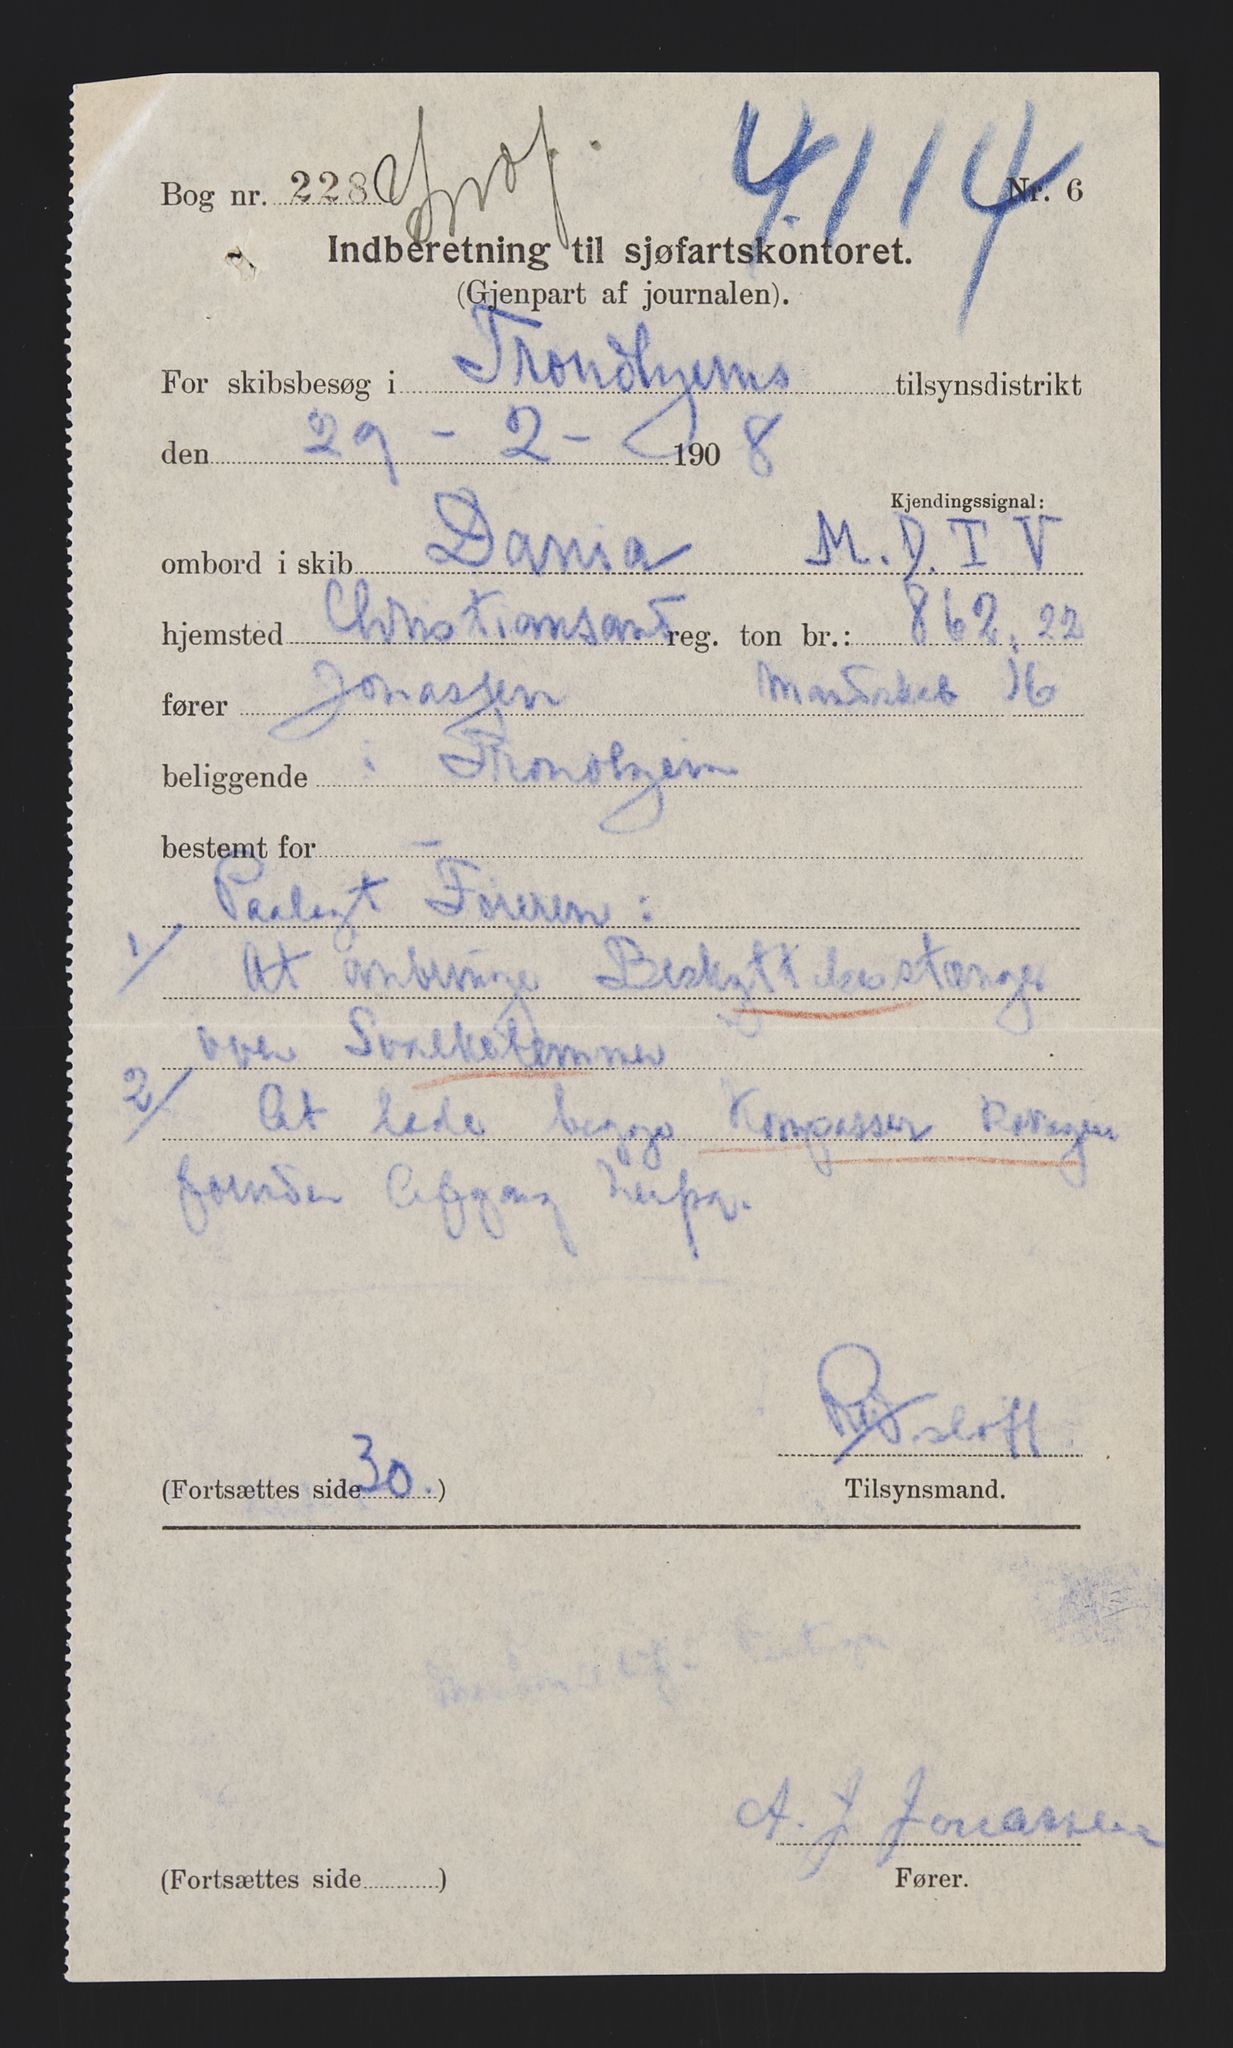 Bog nr. 228 4.114 Nr. 6
Indberetning til sjøfartskontoret.
(Gjenpart af journalen).
For skibsbesøg i Trondhjems tilsynsdistrikt
den 29 - 2 - 1908
Kjendingssignal:
ombord i skib Dania M.D.T V
hjemsted Christiansand reg. ton br.: 862,22
fører Jonassen Mandskab 16
beliggende i Trondhjem
bestemt for —
Paalagt Føreren:
1/ At anbringe Beskyttelsesstænger
over Svalkelemmer
2/ At lade begge Kompasser
forinden Afgang herfra.
(Fortsættes side 30.)
Tilsynsmand.
A. J Jonassen
(Fortsættes side ) Fører.